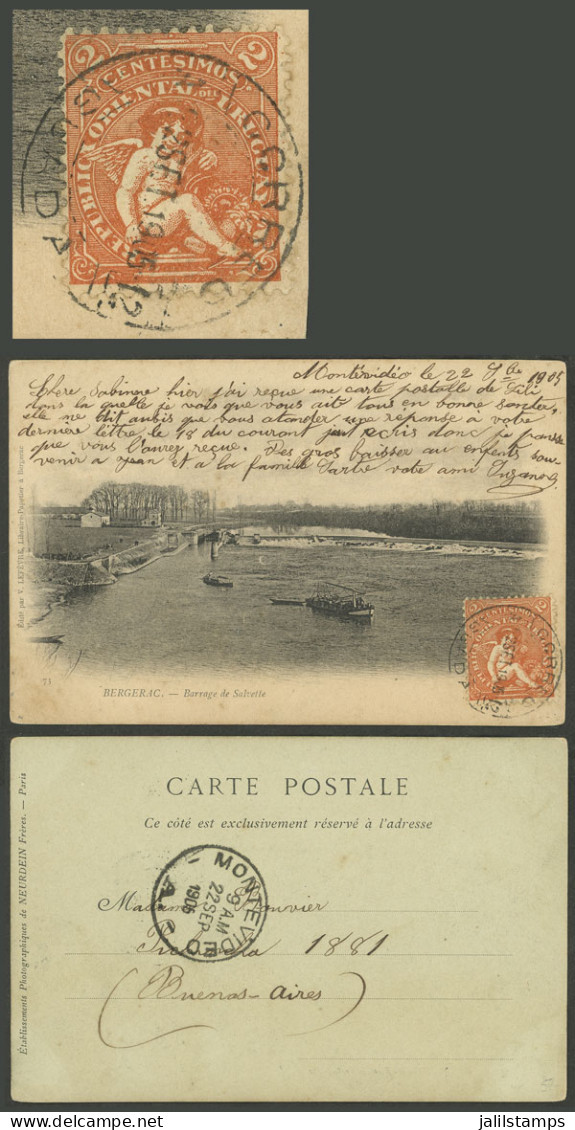 2 CENTESIMOS 2
REPUBLICA ORIENTAL DEL URUGUAY
CORREO
2 SET 1905 12
AGUADA
Montévidéo le 22 9bre 1905
Chere Sabinere hier j'ai reçue une carte postalle du
dans la quelle je vois que vous ait tous en bonne santer,
elle me dit aubis que vous atander une réponse à votre
dernière lettre, le 18 du courant ecris donc je panse
que vous l'aurez reçue. Des gros baisser au enfents sou-
venir a jean et a la famille votre ami
Édit par V. LEFÈVRE, Libraire-Papetier à Bergerac
71
BERGERAC. — Barrage de Salvette
2 CENTESIMOS 2
ORIENTAL DEL
CORREO
AGUADA
CARTE POSTALE
Ce côté est exclusivement réservé à l'adresse
Établissements Photographiques de NEURDEIN Frères. — Paris
MONTEVIDEO
9 A.M
22 SEP
1905
A
Madame Bouvier
1881
(Buenos-aires)
jalilstamps
delcampe.net